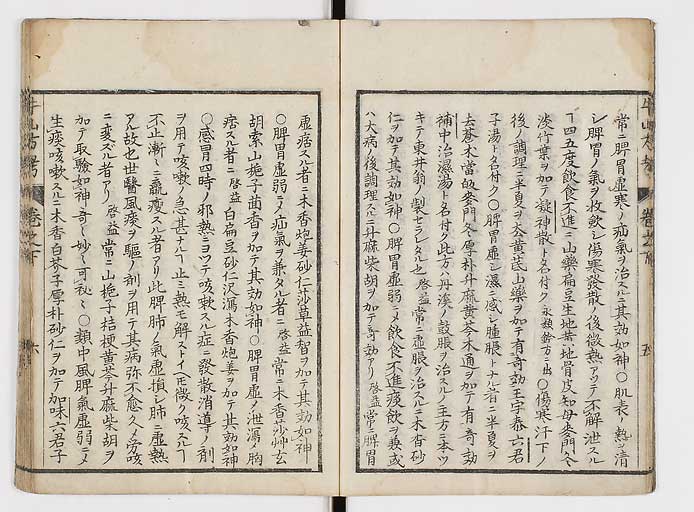 常ニ脾胃虚寒ノ疝氣ヲ治スルニ其効如神○肌表ノ熱ヲ清
シ脾胃ノ氣ヲ收飲シ傷寒發散ノ後微熱アツテ不解泄スル
ヿ四五度飲食不進ニ山藥扁豆生地黄地骨皮知母麥門冬
淡竹葉ヲ加テ凝神散ト名付ク 永類鈴方ニ出 ○傷寒汗下ノ
後ノ調理ニ半夏ヲ去黄茋山藥ヲ加テ有奇効王宇泰六君
子湯ト名付ク○脾胃虚シ濕ニ感シ腫脹トナル者ニ半夏ヲ
去蒼木當皈麥門冬厚朴升麻黄芩木通ヲ加テ有奇効
補中治濕湯ト名付ク此方ハ丹溪ノ鼓脹ヲ治スルノ主方ニ本ツ
キテ東井翁ノ製セラレタル也 啓益 常ニ虚脹ヲ治スルニ木香砂
仁ヲ加テ其効如神○脾胃虚弱ニメ飲食不進痰飲ヲ兼或
ハ大病ノ後調理スルニ升麻柴胡ヲ加テ奇効アリ 啓益 常ニ脾胃
虚痞スル者ニ木香炮姜砂仁莎草益智ヲ加テ其効如神
○脾胃虚弱ニメ疝氣ヲ兼タル者ニ 啓益 常ニ木香莎艸玄
胡索山梔子茴香ヲ加テ其効如神○脾胃虚ノ泄瀉ノ胸
痞スル者ニ 啓益 白扁豆砂仁沢瀉木香炮姜ヲ加テ其効如神
○感冒四時ノ邪熱ニヨツテ咳嗽スル症ニ發散消導ノ剤
ヲ用テ咳嗽ノ急甚ナルヿ止ミ熱モ解ストイヘ𪜈微ク咳スルヿ
不止漸〻ニ羸瘦スル者アリ此脾肺ノ氣虚損シ肺ニ虚熱
アル故也世醫風痰ヲ驅ノ剤ヲ用テ其病弥不愈久ノ労咳
ニ変ズル者アリ 啓益 常ニ山梔子桔梗黄芩升麻柴胡ヲ
加テ取驗如神奇〻妙〻可秘〻○類中風脾氣虚弱ニメ
生痰咳嗽スルニ木香白芥子厚朴砂仁ヲ加テ加味六君子
牛山方考
巻之下
五
六